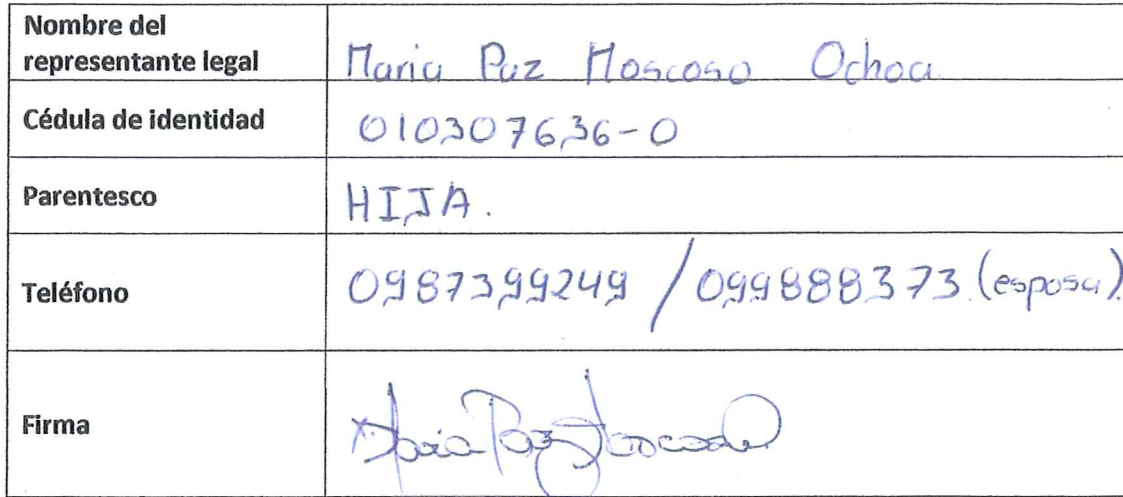 Nombre del
representante legal
Maria Paz Moscoso Ochoa
Cédula de identidad
010307636-0
Parentesco
HIJA.
Teléfono
0987399249 / 099888373 (esposa)
Firma
Maria Paz Moscoso